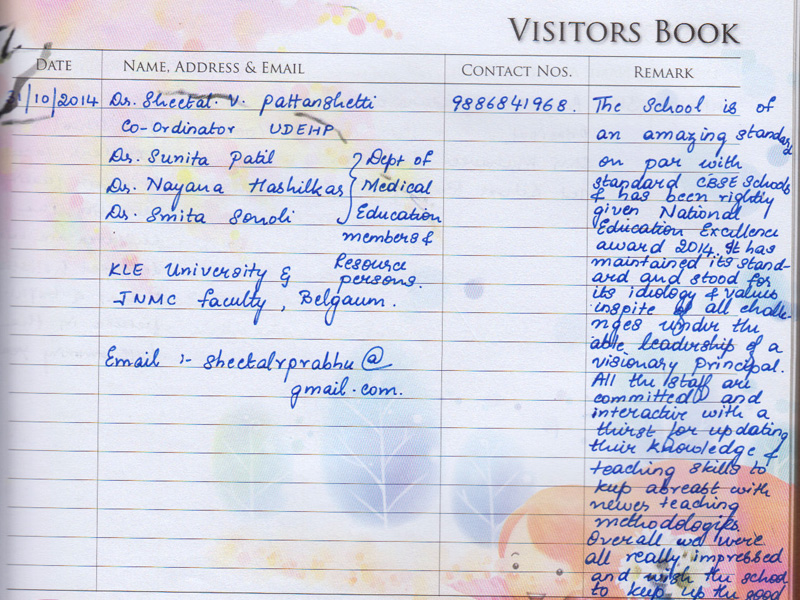 VISITORS BOOK
DATE NAME, ADDRESS & EMAIL CONTACT NOS. REMARK
/10/2014 Dr. Sheetal. V. Pattanshetti 9886841968.
Co-Ordinator UDEHP
Dr. Sunita Patil } Dept of
Dr. Nayana Hashilkar } Medical
Dr. Smita Sonoli } Education
members &
KLE University & Resource persons.
JNMC faculty, Belgaum.
Email :- sheetalrprabhu@
gmail.com.
The School is of
an amazing standard
on par with
standard CBSE Schools
& has been rightly
given National
Education Excellence
award 2014. It has
maintained its stand-
ard and stood for
its idiology & values
inspite of all challe-
nges under the
able leadership of a
visionary principal.
All the staff are
committed and
interactive with a
thirst for updating
their knowledge &
teaching skills to
keep abreast with
newer teaching
methodologies.
Overall we were
all really impressed
and wish the school
to keep up the good